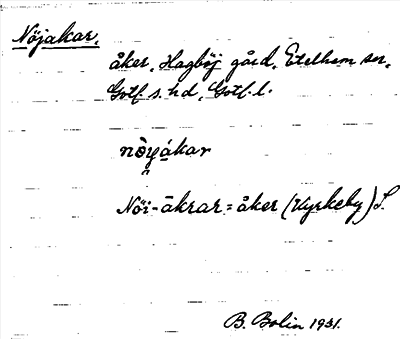 Nöjakar.
åker, Hagböj gård, Etelhem sn,
Gotl. s. hd, Gotl. l.
nöyákar
Nöi-åkrar = åker (Kyrkeby) L.
B. Bolin 1931.